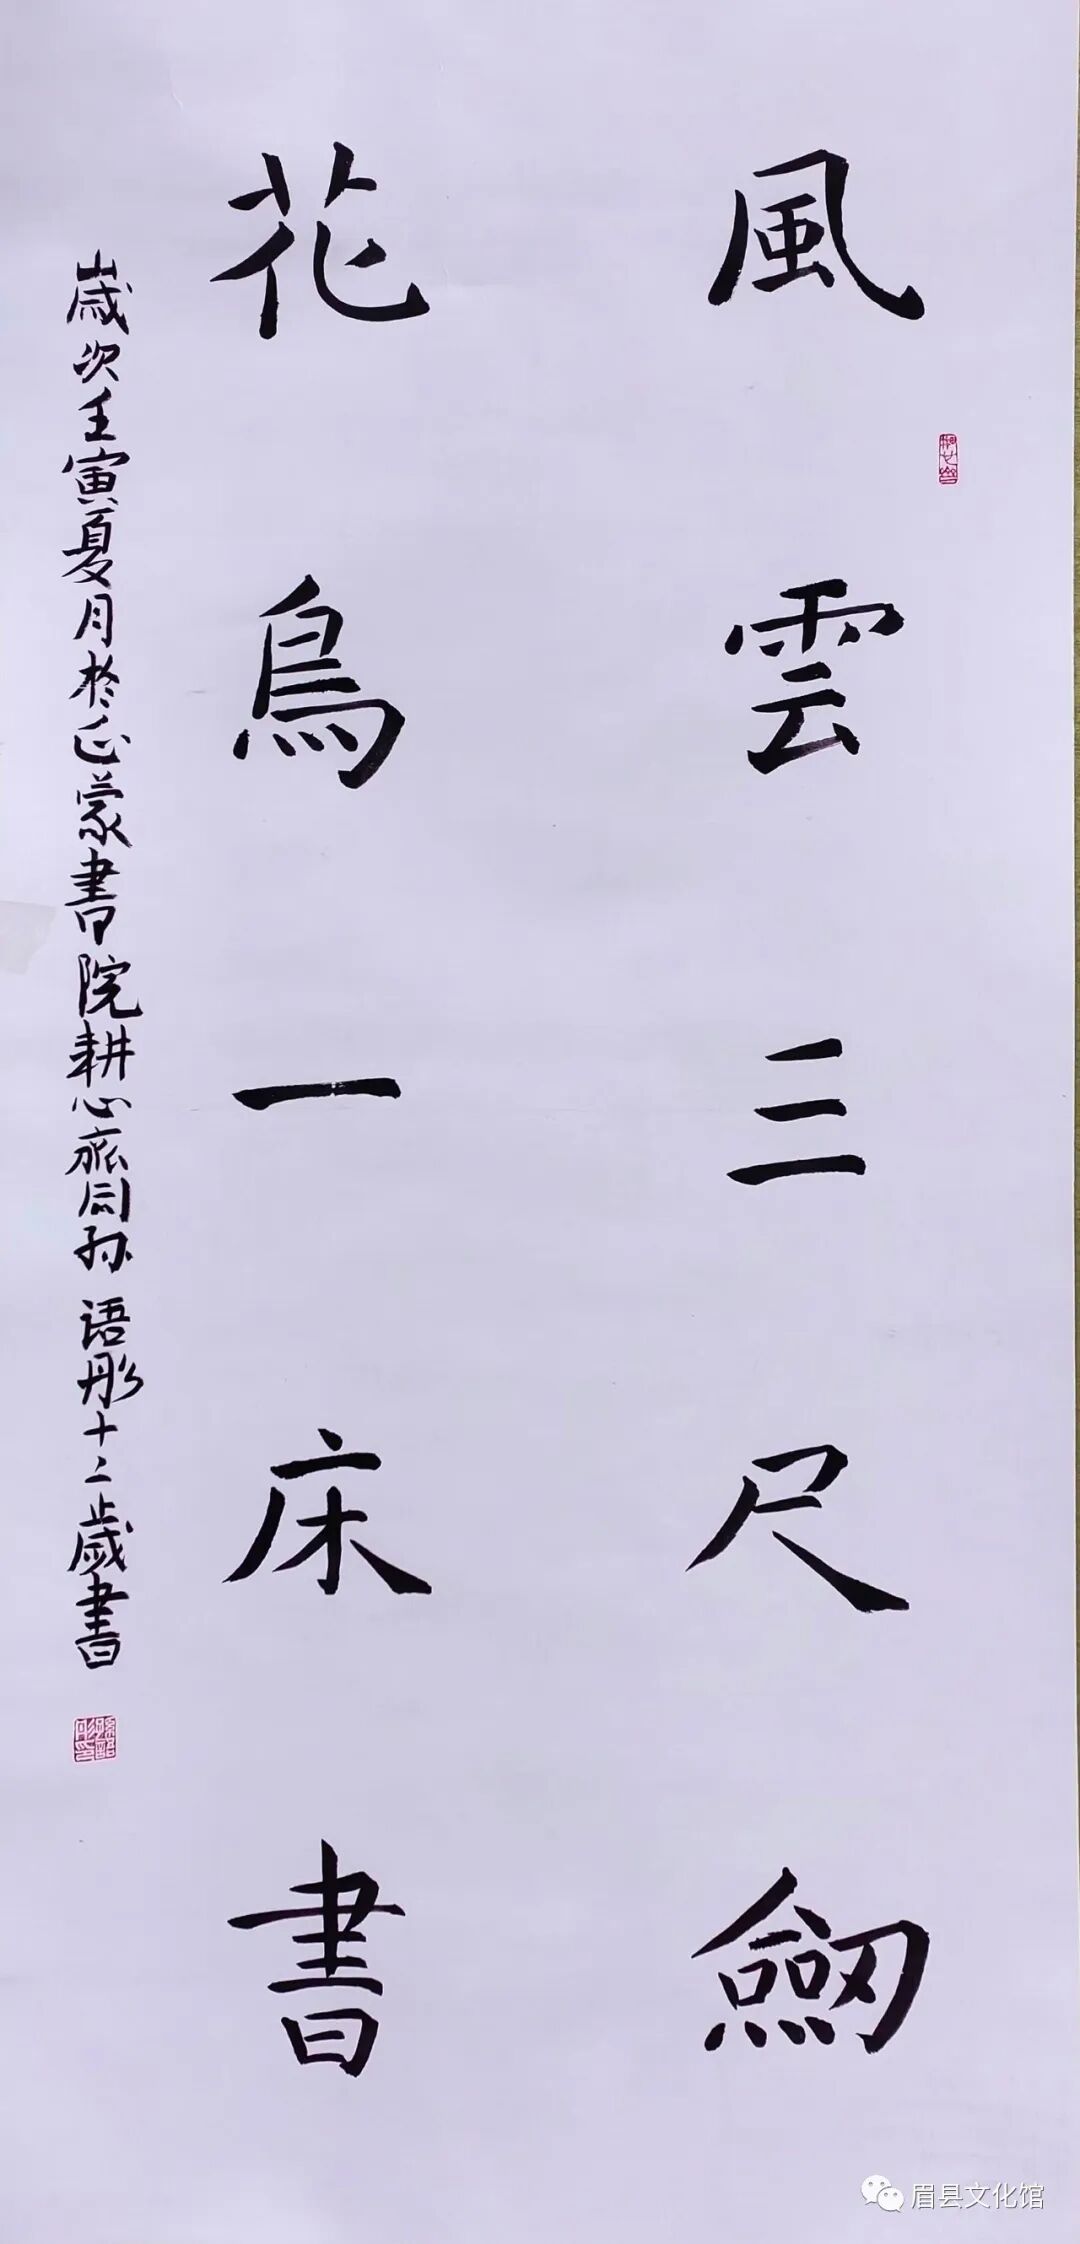 風雲三尺劔
花鳥一床書
歲次壬寅夏月於正蒙書院耕心齋同孙语彤十二歲書
眉县文化馆